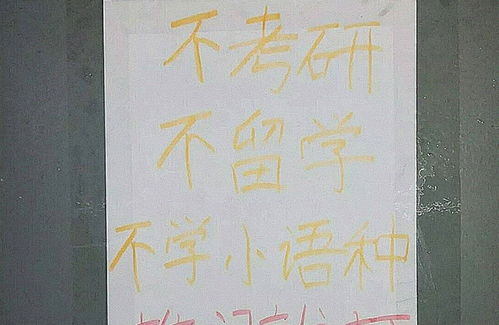 不考研
不留学
不学小语种